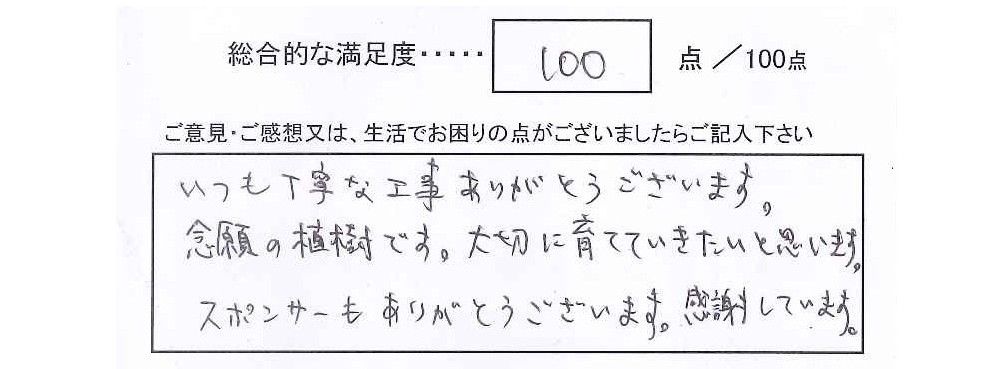 総合的な満足度・・・・・ 100 点 ／100点
ご意見・ご感想又は、生活でお困りの点がございましたらご記入下さい
いつも丁寧な工事ありがとうございます。
念願の植樹です。大切に育てていきたいと思います。
スポンサーもありがとうございます。感謝しています。